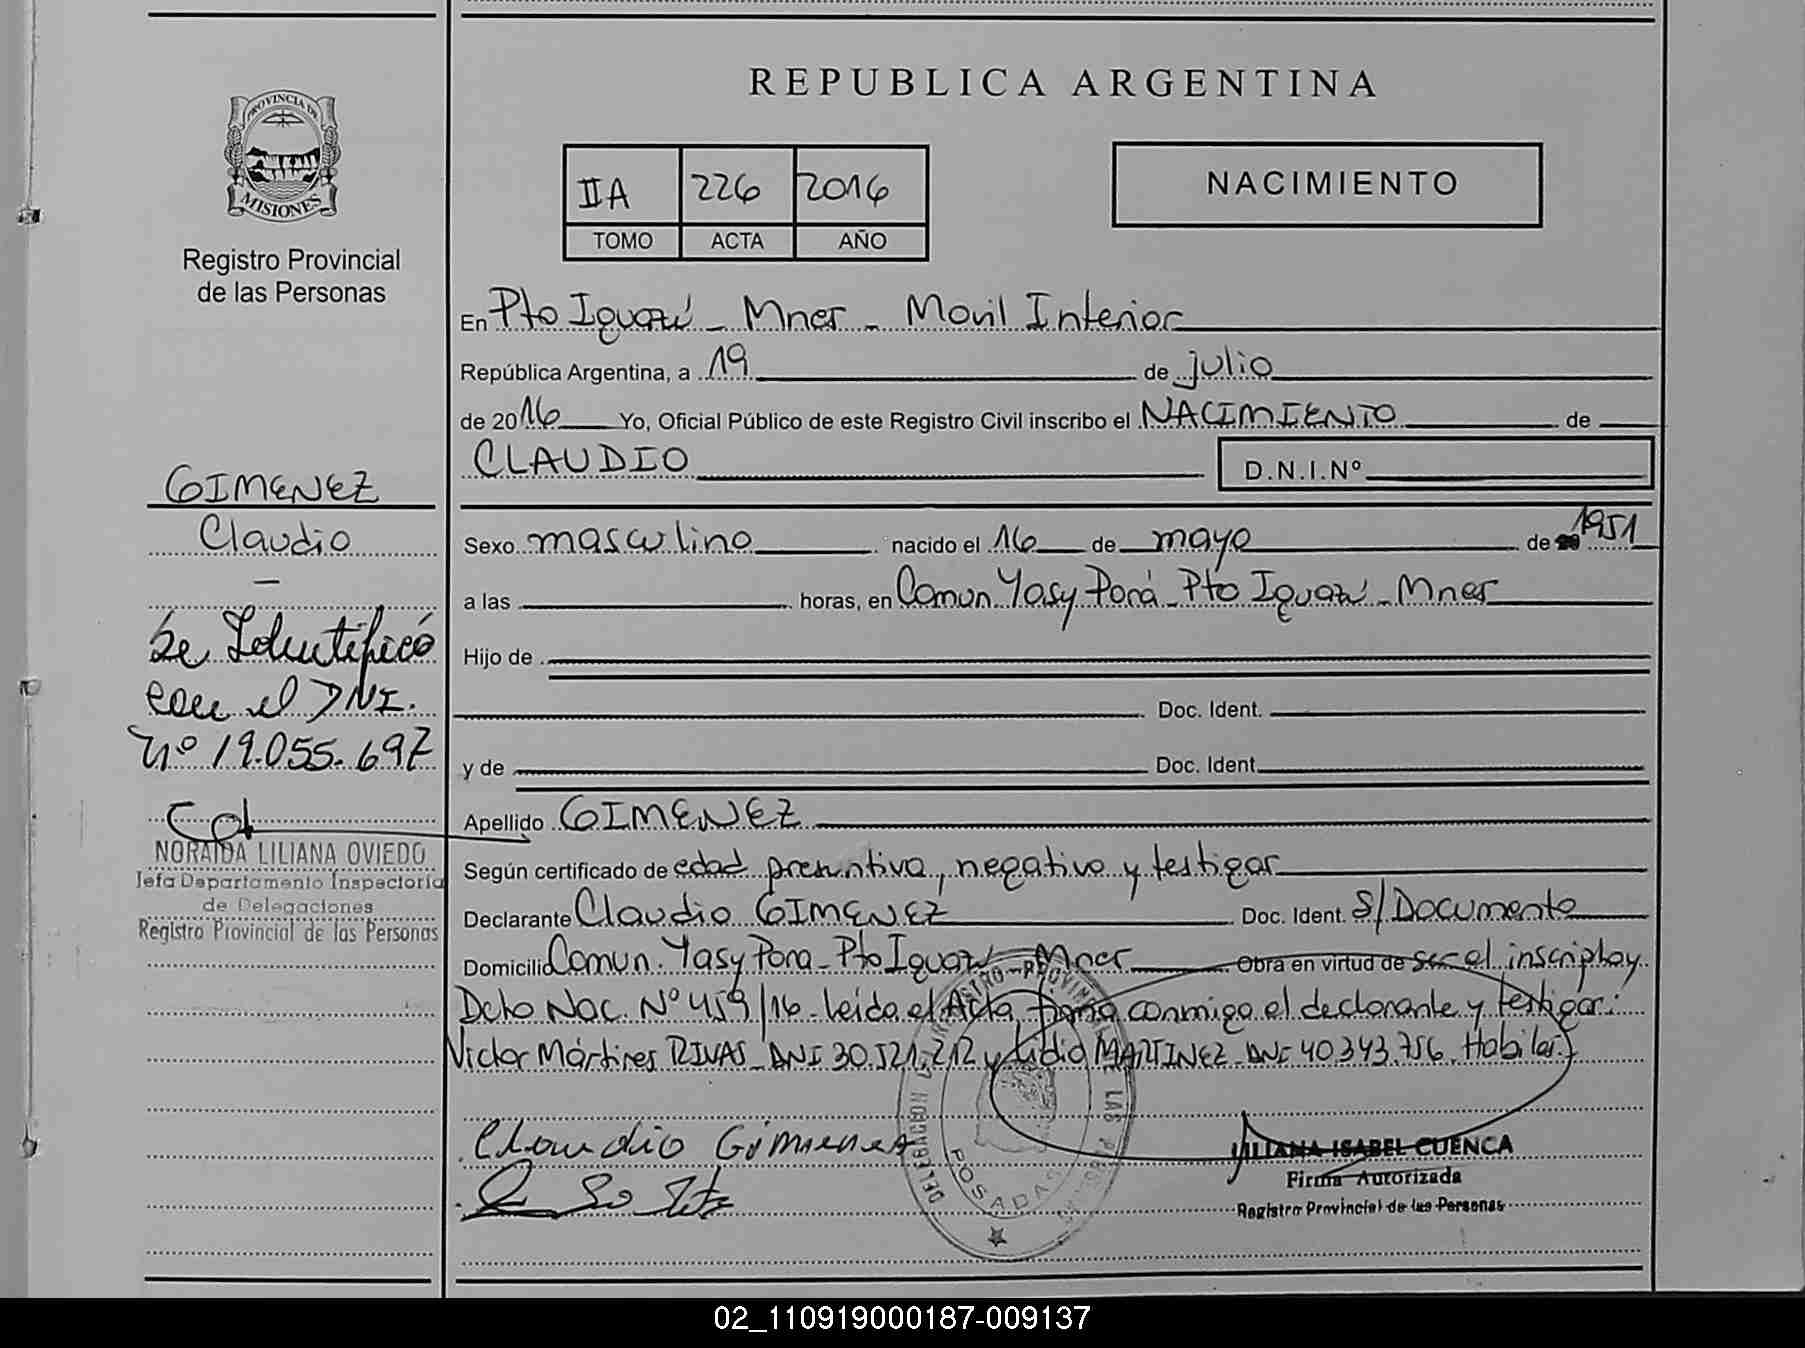 REPUBLICA ARGENTINA
PROVINCIA DE
MISIONES
Registro Provincial
de las Personas
IIA 226 2016
TOMO ACTA AÑO
NACIMIENTO
En Pto Iguazú - Mnes - Movil Interior
República Argentina, a 19 de julio
de 2016 Yo, Oficial Público de este Registro Civil inscribo el NACIMIENTO de
CLAUDIO D.N.I.Nº
GIMENEZ
Claudio
Se Identificó
con el DNI.
Nº 19.055.697
NORAIDA LILIANA OVIEDO
Jefa Departamento Inspectoría
de Delegaciones
Registro Provincial de las Personas
Sexo masculino nacido el 16 de mayo de 1951
a las horas, en Comun. Yasy Porá - Pto Iguazú - Mnes
Hijo de
Doc. Ident.
y de Doc. Ident.
Apellido GIMENEZ
Según certificado de edad presuntiva, negativo y testigos
Declarante Claudio GIMENEZ Doc. Ident. S/Documento
Domicilio Comun. Yasy Pora - Pto Iguazú - Mnes Obra en virtud de ser el inscripto y
Dcto Nac. Nº 459/16 - leída el Acta firma conmigo el declarante y testigos:
Victor Mártires RIVAS - DNI 30.521.212 y Lidio MARTINEZ - DNI 40.343.756. Habiles
Claudio Gimenes
DELEGACION REGISTRO PROVINCIAL DE LAS PERSONAS
POSADAS
LILIANA ISABEL CUENCA
Firma Autorizada
Registro Provincial de las Personas
02_110919000187-009137